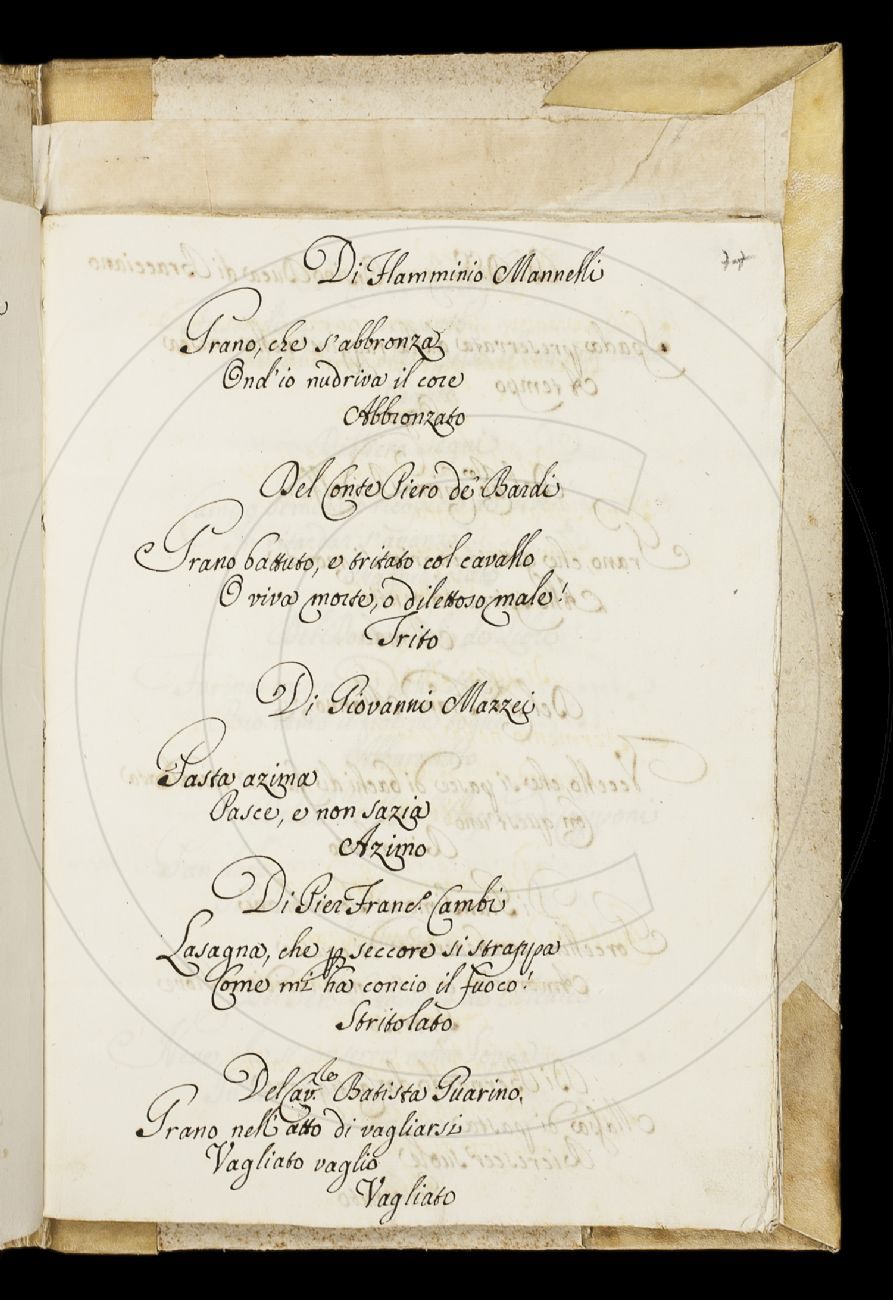 Di Flamminio Mannelli
Grano, che s'abbronza
Ond'io nudriva il core
Abbronzato
Del Conte Piero de' Bardi
Grano battuto, e tritato col cavallo
O viva morte, o dilettoso male!
Trito
Di Giovanni Mazzei
Pasta azima
Pasce, e non sazia
Azimo
Di Pier Franc.º Cambi
Lasagna, che ꝑ seccore si strappa
Come m'ha concio il fuoco!
Stritolato
Del Cav.le Batista Guarino.
Grano nell'atto di vagliarsi
Vagliato vaglio
Vagliato